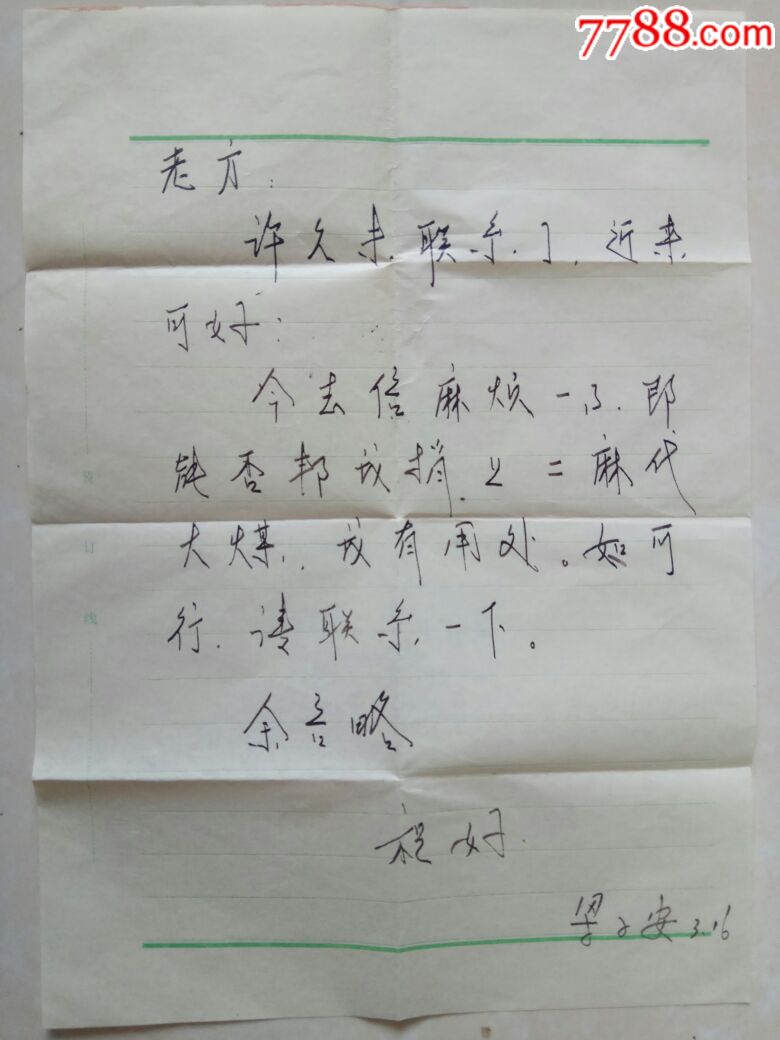 7788.com
老方:
许久未联系了,近来
可好:
今去信麻烦一了,即
能否邦我捎 二麻代
大煤,我有用处。如可
行,请联系一下。
余言略
祝好
安 3.16
装
订
线